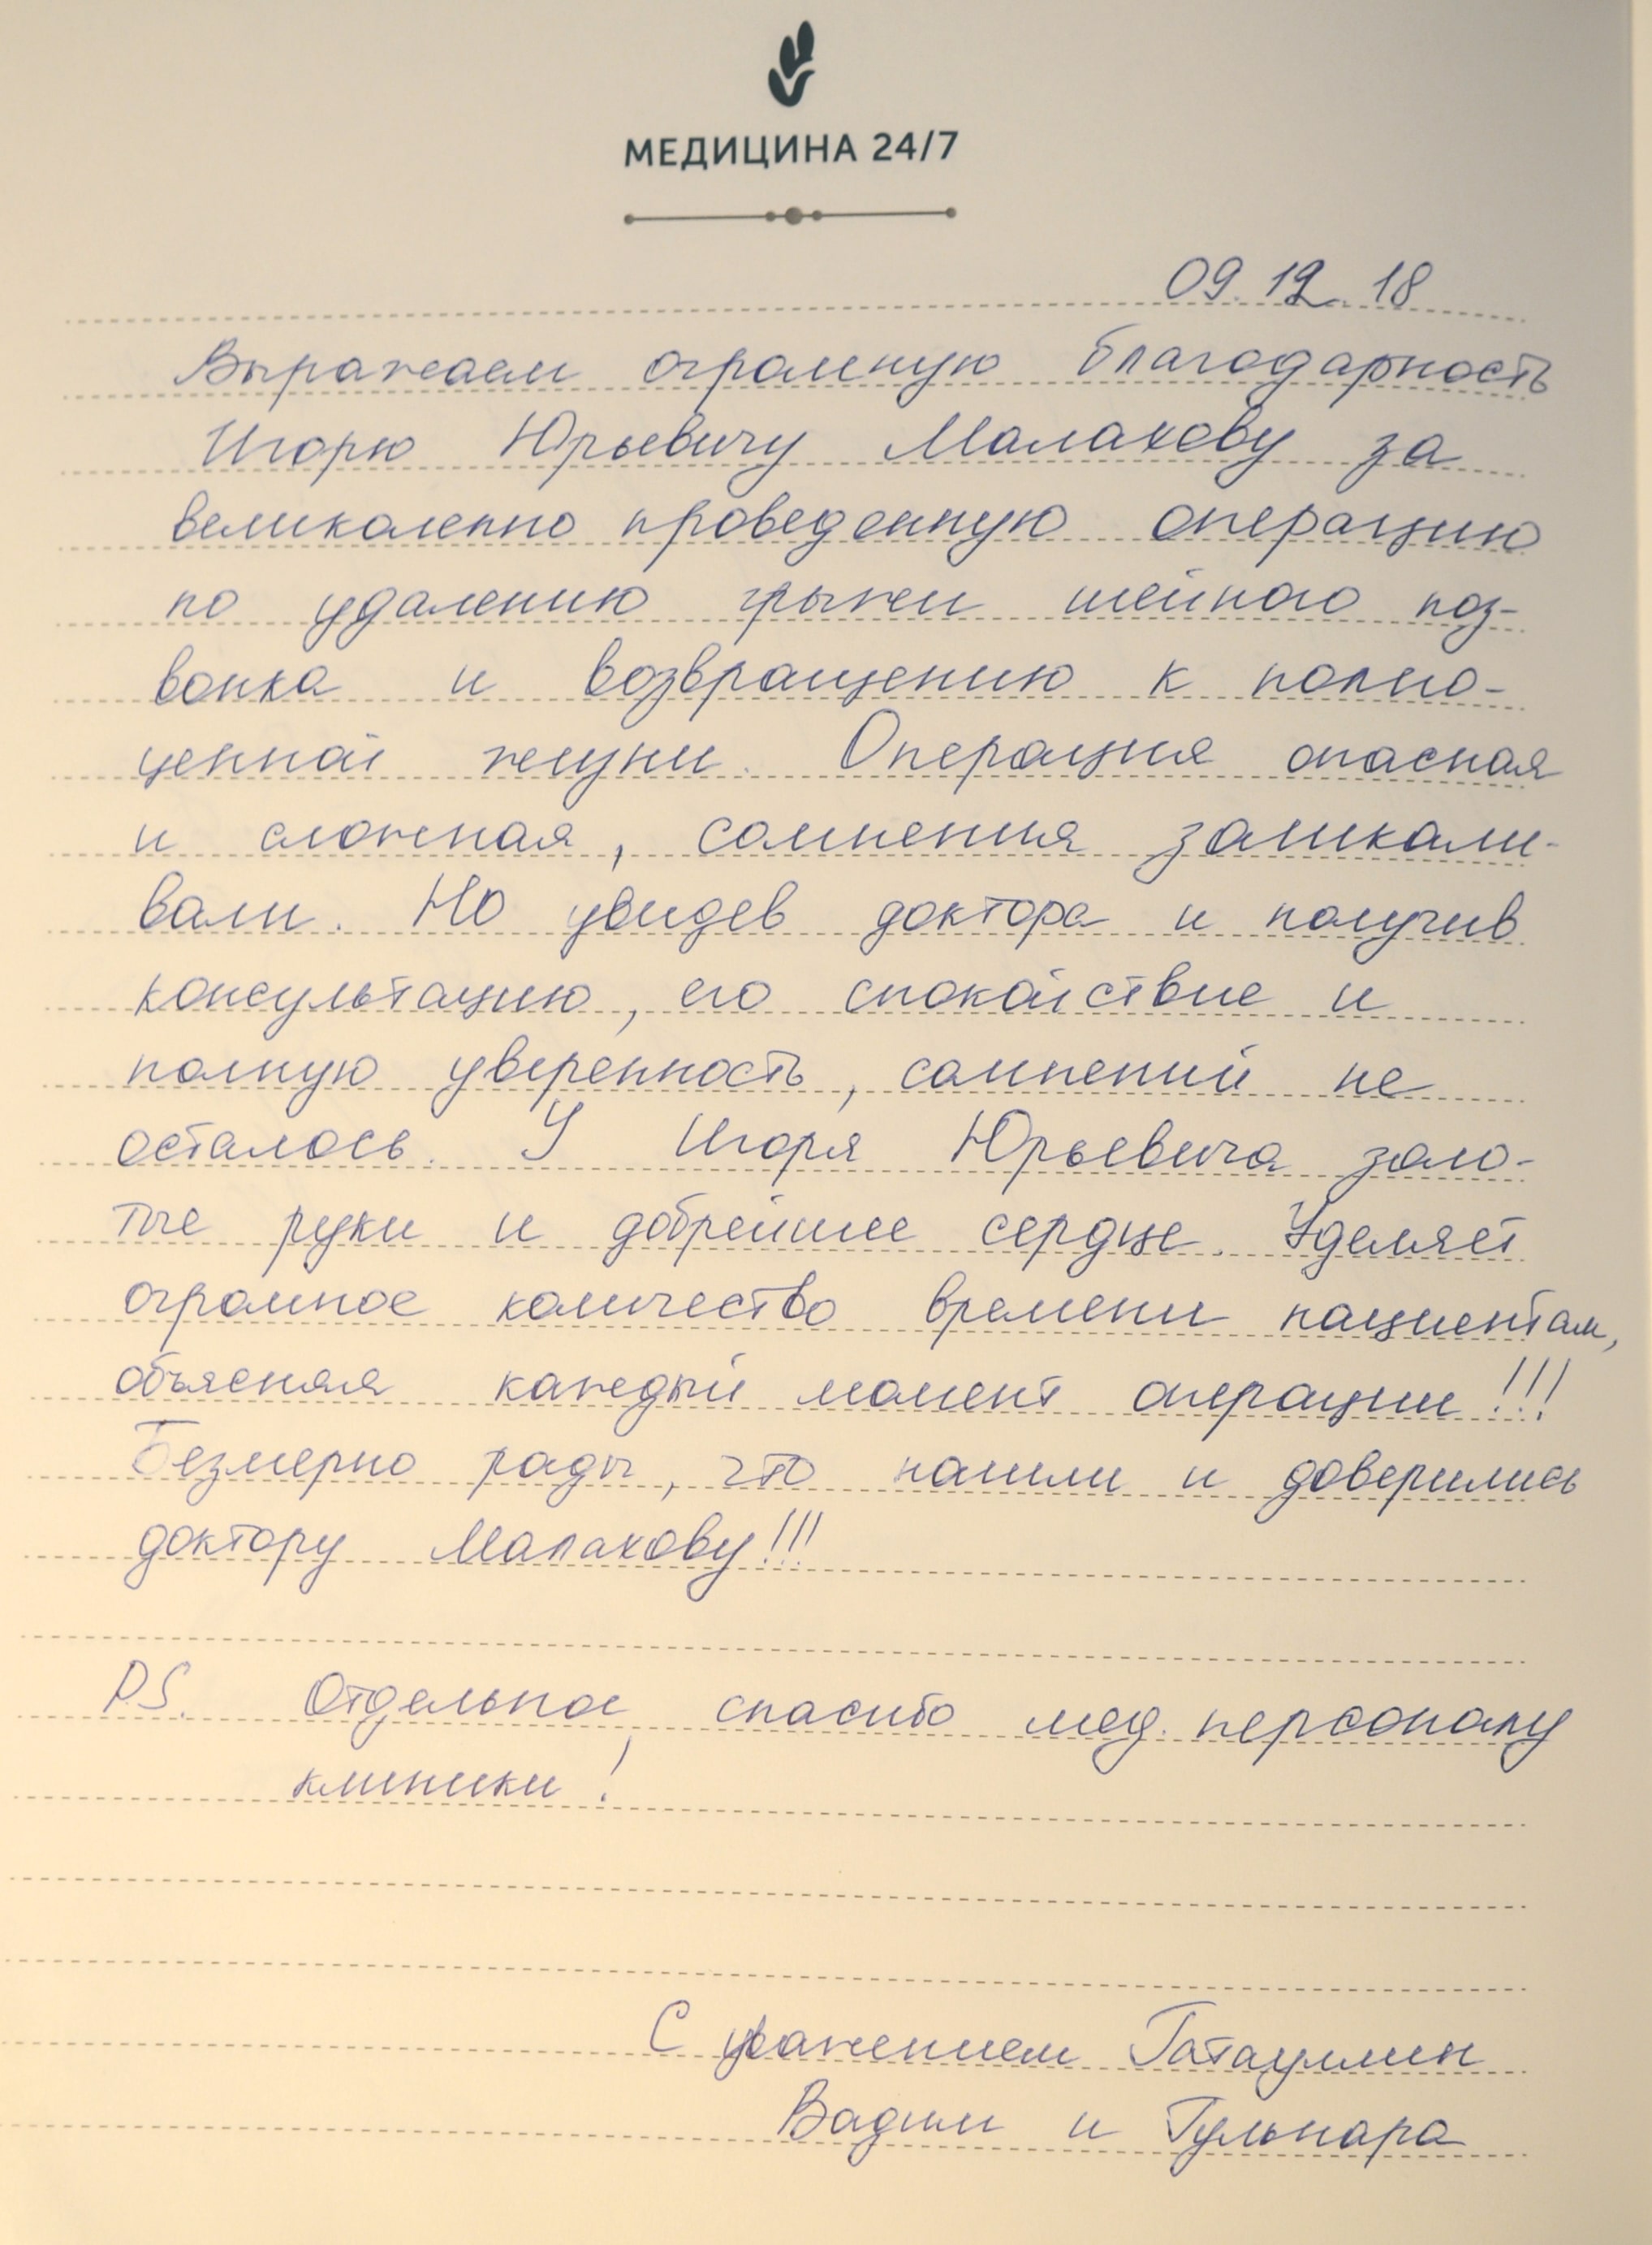 МЕДИЦИНА 24/7
09.12.18
Выражаем огромную благодарность
Игорю Юрьевичу Малахову за
великолепно проведенную операцию
по удалению грыжи шейного поз-
вонка и возвращению к полно-
ценной жизни. Операция опасная
и сложная, сомнения зашкали-
вали. Но увидев доктора и получив
консультацию, его спокойствие и
полную уверенность, сомнений не
осталось. У Игоря Юрьевича золо-
тые руки и добрейшее сердце. Уделяет
огромное количество времени пациентам,
объясняя каждый момент операции!!!
Безмерно рады, что нашли и доверились
доктору Малахову!!!
P.S. Отдельное спасибо мед. персоналу
клиники!
С уважением Гатауллин
Вадим и Гульнара